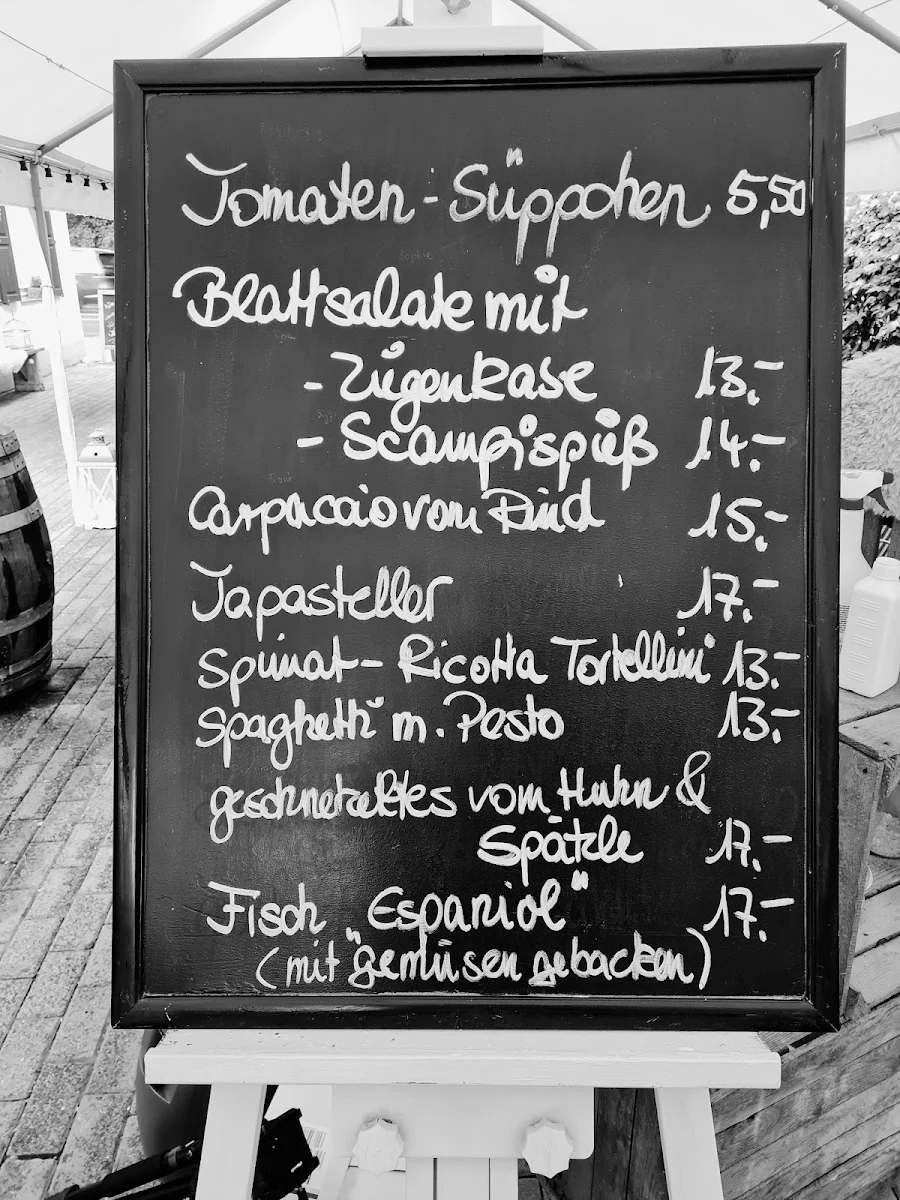 Tomaten-Süppchen 5,50
Blattsalate mit
- Ziegenkäse 13.-
- Scampispieß 14.-
Carpaccio vom Rind 15.-
Tapasteller 17.-
Spinat-Ricotta Tortellini 13.-
Spaghetti m. Pesto 13.-
geschnetzeltes vom Huhn &
Spätzle 17.-
Fisch „Espaniol" 17.-
(mit gemüsen gebacken)